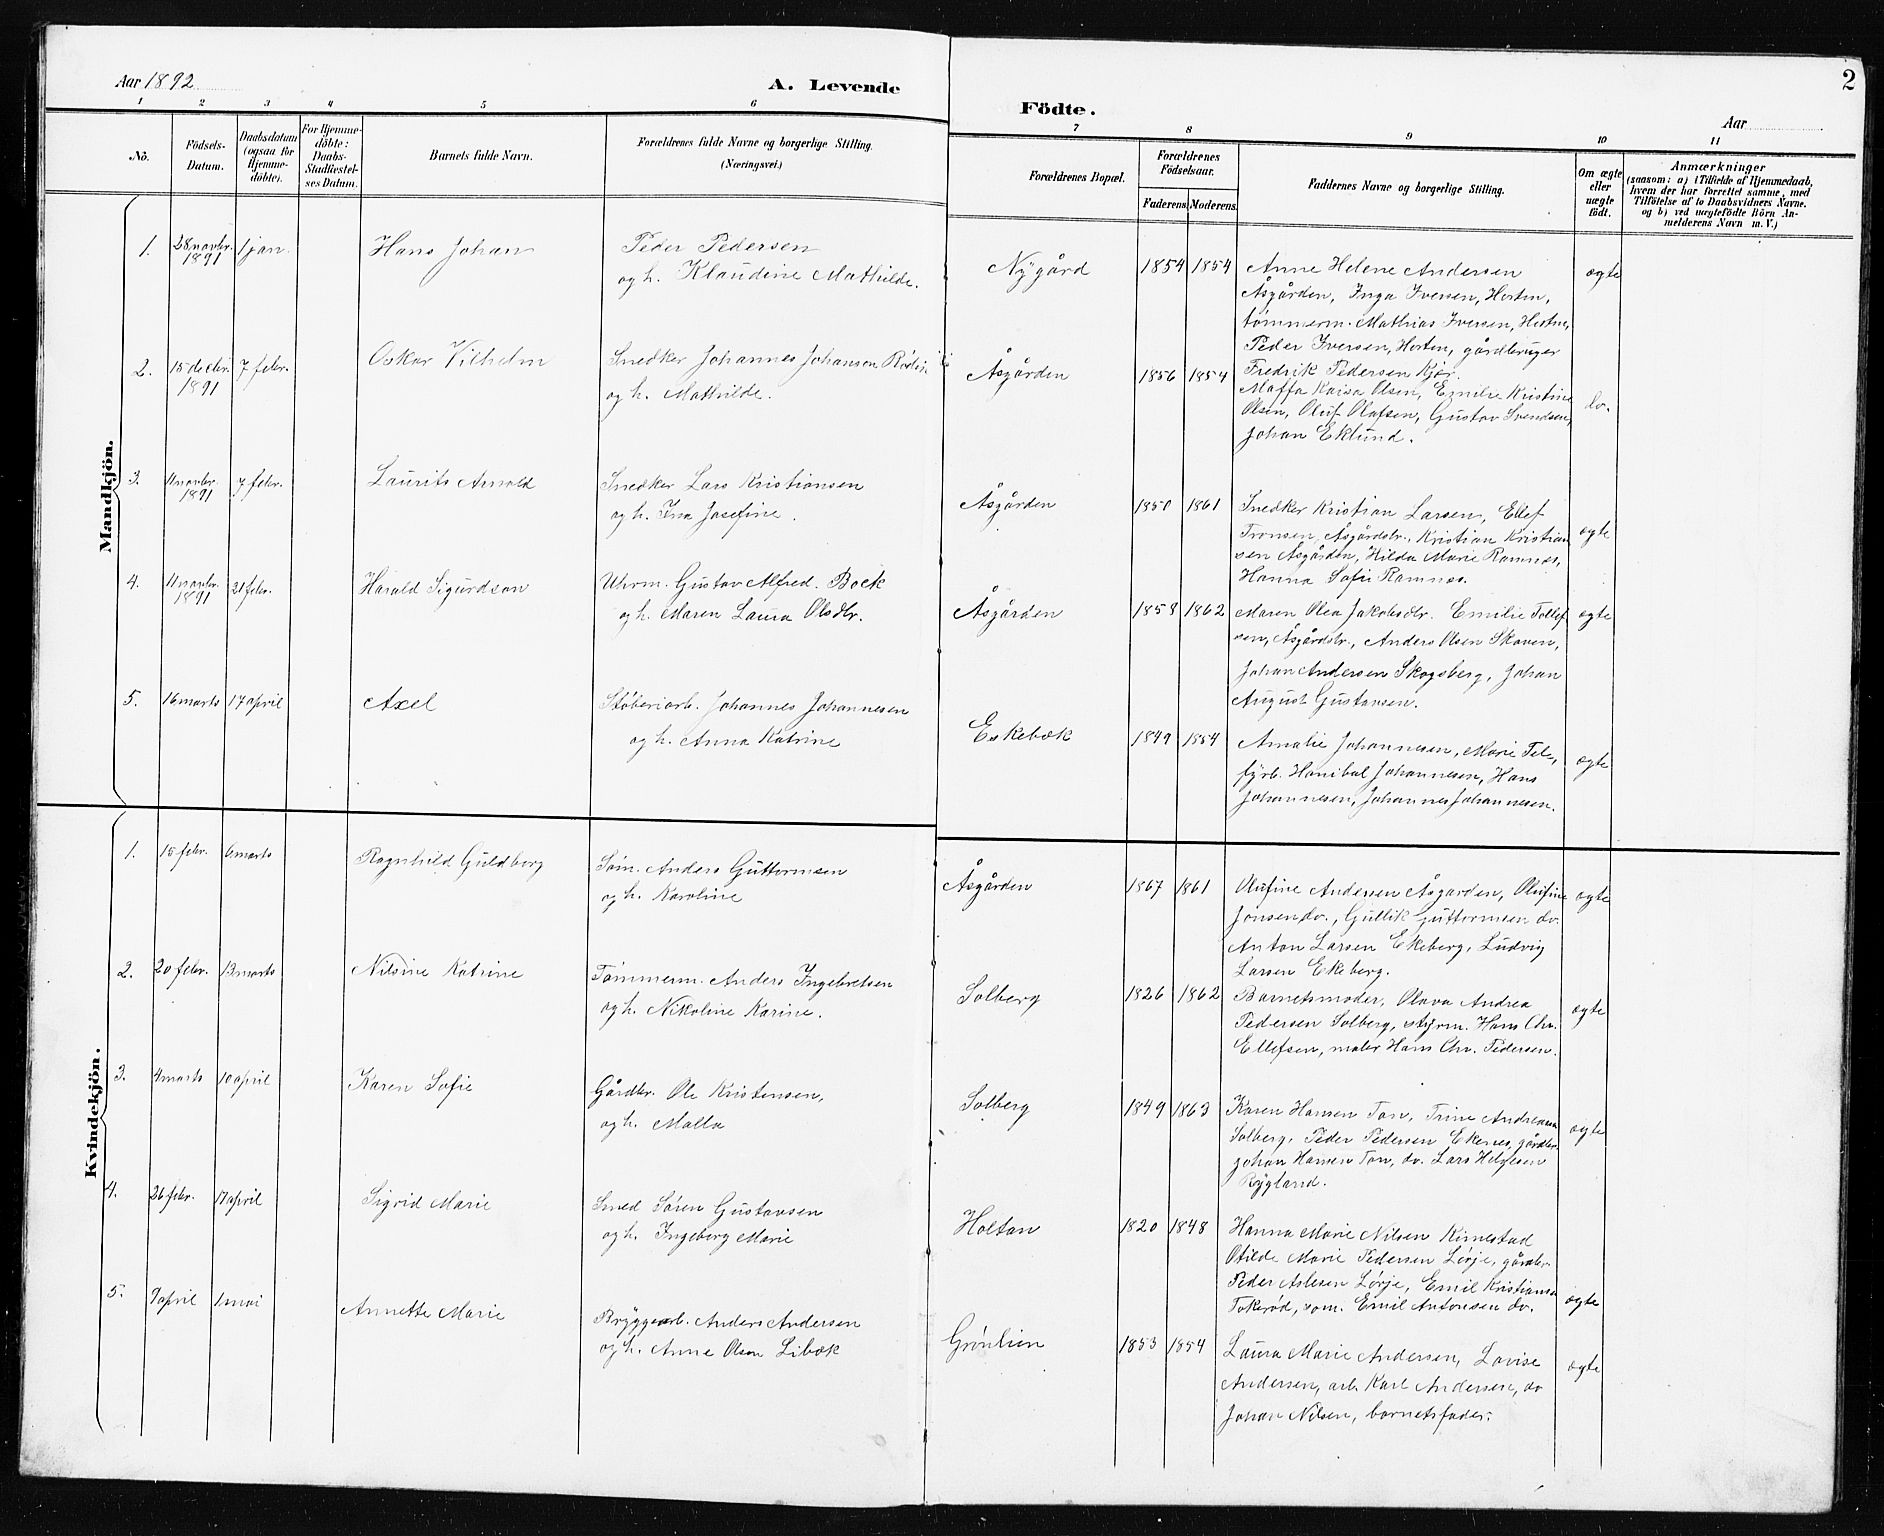 Aar 1892
A. Levende
1 2 3 4 5 6
Nô.
Födsels-
Datum.
Daabsdatum
(ogsaa for
Hjemme-
döbte).
For Hjemme-
döbte:
Daabs-
Stadfæstel-
ses Datum.
Barnets fulde Navn.
Forældrenes fulde Navne og borgerlige Stilling.
(Næringsvei.)
Mandkjön.
1. 28 novbr. 1 jan. Hans Johan Peder Pedersen
1891 og h. Klaudine Mathilde.
2. 15 decbr. 7 febr. Oskar Vilhelm Snedker Johannes Johanson
1891 og h. Mathilde.
3. 11 novbr. 7 febr. Laurits Arnold Snedker Lars Kristiansen
1891 og h. Ina Josefine.
4. 11 novbr. 21 febr. Harald Sigurdson Uhrm. Gustav Alfred Boek
1891 og h. Maren Laura Olsdtr.
5. 16 marts 17 april Axel Støberiarb. Johannes Johannesen
og h. Anna Katrine
Kvindekjön.
1. 15 febr. 6 marts Ragnhild Guldborg Søm. Anders Guttormsen
og h. Karoline
2. 20 febr. 13 marts Nilsine Katrine Tømmerm. Anders Ingebretsen
og h. Nikoline Karine.
3. 4 marts 10 april Karen Sofie Gårdbr. Ole Kristensen,
og h. Malla
4. 26 febr. 17 april Sigrid Marie Smed Søren Gustavsen
og h. Ingeborg Marie
5. 7 april 1 mai Annette Marie Bryggearb. Anders Andersen
og h. Anne Olsen Libæk
2
Födte.
Aar
7 8 9 10 11
Forældrenes Bopæl.
Forældrenes
Födselsaar.
Faderens. Moderens.
Faddernes Navne og borgerlige Stilling.
Om ægte
eller
uægte
födt.
Anmærkninger
(saasom: a) i Tilfælde af Hjemmedaab,
hvem der har forrettet samme, med
Tilföielse af to Daabsvidners Navne.
og b) ved uægtefödte Börn An-
melderens Navn m. V.)
Nygård 1854 1854 Anne Helene Andersen ægte
Åsgården, Inga Iversen, Horten,
tømmerm. Mathias Iversen, Horten,
Peder Iversen, Horten, gårdbruger
Fredrik Pedersen Kjær.
Åsgården 1856 1854 Maffa Kaisa Olsen, Emilie Kristine do.
Olsen, Oluf Olafsen, Gustav Svendsen,
Johan Eklund.
Åsgården 1850 1861 Snedker Kristian Larsen, Ellef
Tronsen, Åsgårdstr., Kristian Kristian ægte
sen Åsgården, Hilda Marie Ramnæs,
Hanna Sofie Ramnes.
Åsgården 1858 1862 Maren Olea Jakobsdtr. Emilie Tollef ægte
sen, Åsgårdstr., Anders Olsen Skaven,
Johan Andersen Skogsberg, Johan
August Gustavsen.
Eskebæk 1849 1854 Amalie Johannesen, Marie
fyrb. Hanibal Johannesen, Hans ægte
Johannesen, Johannes Johannesen.
Åsgården 1867 1861 Olufine Andersen Åsgarden, Olufine ægte
Jonsen do., Gullik Guttormsen do.
Anton Larsen Ekeberg, Ludvig
Larsen Ekeberg.
Solberg 1826 1862 Barnetsmoder, Olava Andrea ægte
Pedersen Solberg, styrm. Hans Chr.
Ellefsen, maler Hans Chr. Pedersen.
Solberg 1849 1863 Karen Hansen Tan, Trine Andreasen ægte
Solberg, Peder Pedersen Ekenes, gårdbr.
Johan Hansen Tan, do. Lars Helgesen
Rygland.
Holtan 1820 1848 Hanna Marie Nilsen Kimestad
Otilde Marie Pedersen Lørje, gårdbr.
Peder Aslesen Lørje, Emil Kristiansen
Tokerød, søm. Emil Antonsen do. ægte
Grønlien 1853 1854 Laura Marie Andersen, Lovise ægte
Andersen, arb. Karl Andersen, do
Johan Nilsen, barnetsfader.